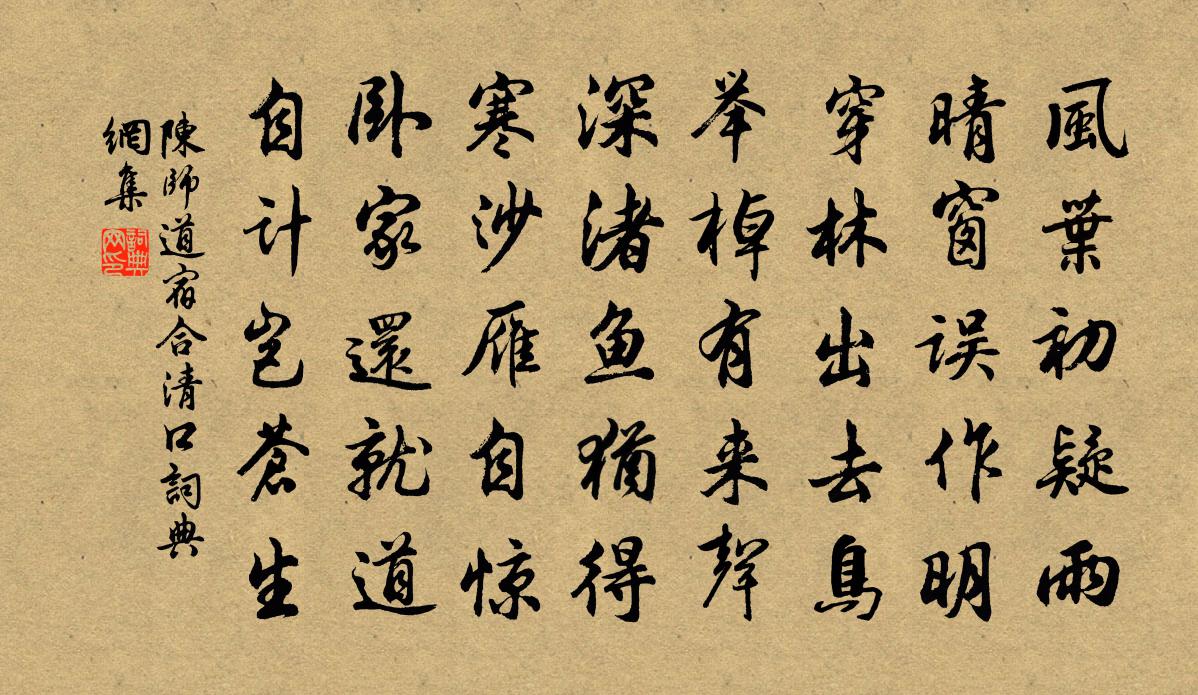 風葉初疑雨
晴窗误作明
穿林出去鳥
举棹有来聲
深渚鱼猶得
寒沙雁自惊
卧家還就道
自计岂蒼生
陳師道宿合清口詞典
網集
詞典
网印